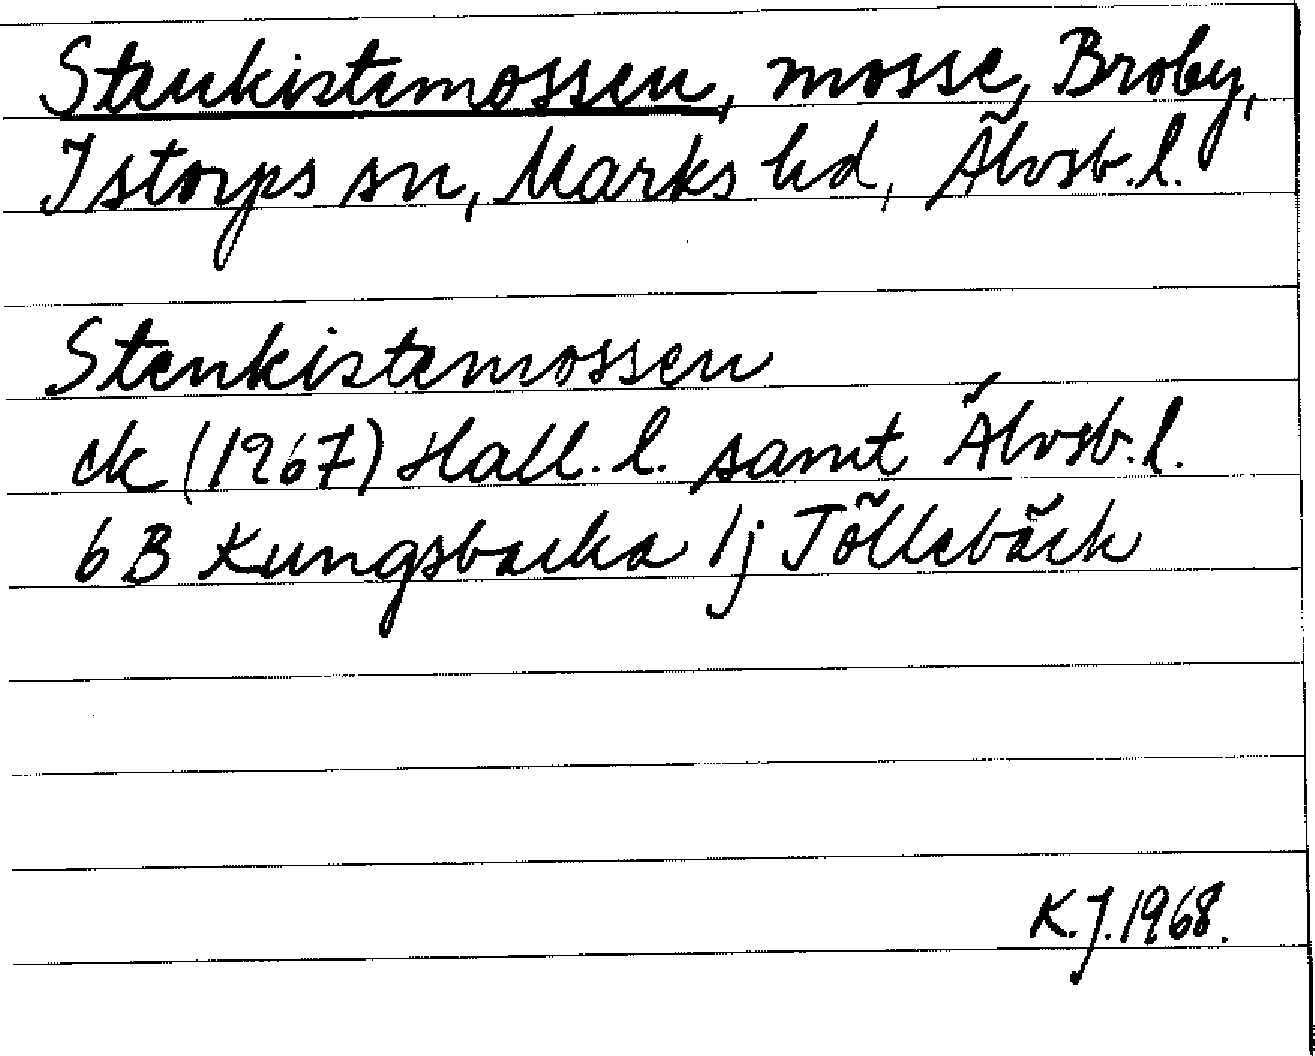 Stenkistemossen, mosse, Broby,
Istorps sn, Marks hd, Älvsb.l.
Stenkistemossen
ek (1967) Hall.l. samt Älvsb.l.
6B Kungsbacka 1j Töllebäck
K.J. 1968.